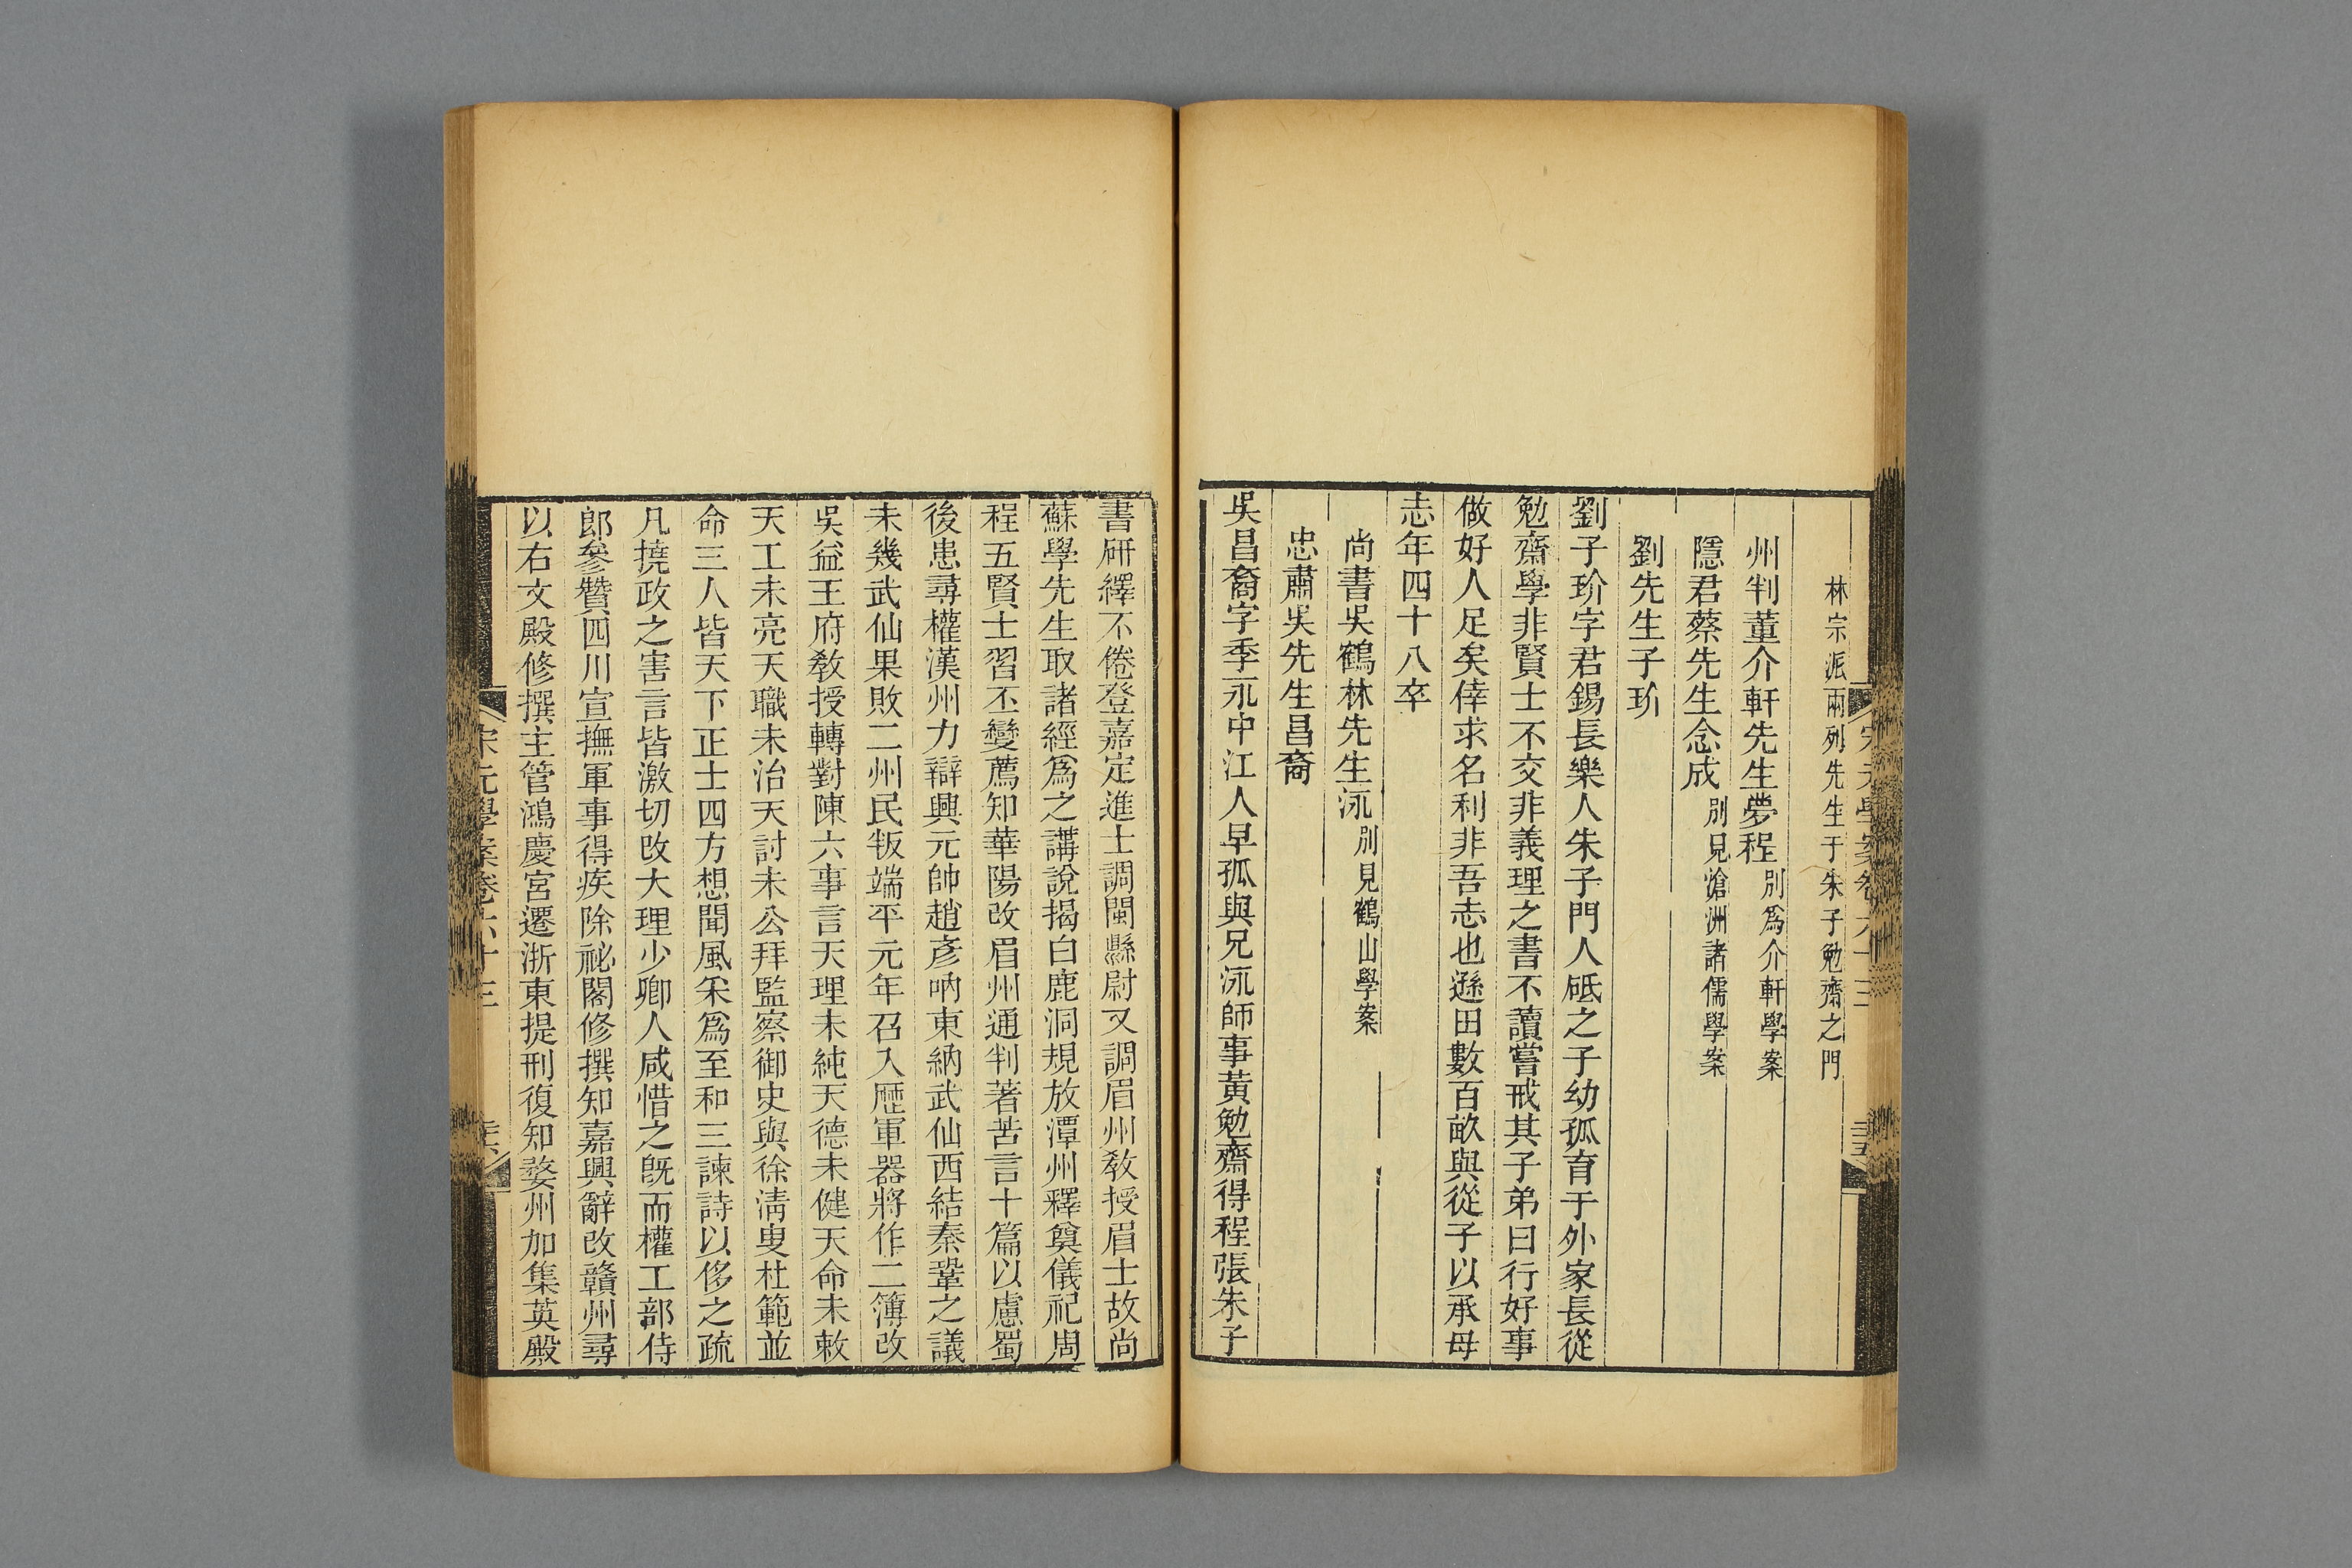 宋元學案卷六十三 三五
林宗派兩列先生于朱子勉齋之門
州判董介軒先生夢程 別爲介軒學案
隱君蔡先生念成 別見滄洲諸儒學案
劉先生子玠
劉子玠字君錫長樂人朱子門人砥之子幼孤育于外家長從
勉齋學非賢士不交非義理之書不讀嘗戒其子弟曰行好事
做好人足矣倖求名利非吾志也遜田數百畝與從子以承母
志年四十八卒
尚書吳鶴林先生泳 別見鶴山學案
忠肅吳先生昌裔
吳昌裔字季永中江人早孤與兄泳師事黃勉齋得程張朱子
書研繹不倦登嘉定進士調閬縣尉又調眉州教授眉士故尚
蘇學先生取諸經爲之講說揭白鹿洞規放潭州釋奠儀祀周
程五賢士習丕變薦知華陽改眉州通判著苦言十篇以慮蜀
後患尋權漢州力辯興元帥趙彥吶東納武仙西結秦鞏之議
未幾武仙果敗二州民叛端平元年召入歷軍器將作二簿改
吳益王府教授轉對陳六事言天理未純天德未健天命未敕
天工未亮天職未治天討未公拜監察御史與徐清叟杜範並
命三人皆天下正士四方想聞風采爲至和三諫詩以侈之疏
凡撓政之害言皆激切改大理少卿人咸惜之旣而權工部侍
郎參贊四川宣撫軍事得疾除祕閣修撰知嘉興辭改贛州尋
以右文殿修撰主管鴻慶宮遷浙東提刑復知婺州加集英殿
宋元學案卷六十三